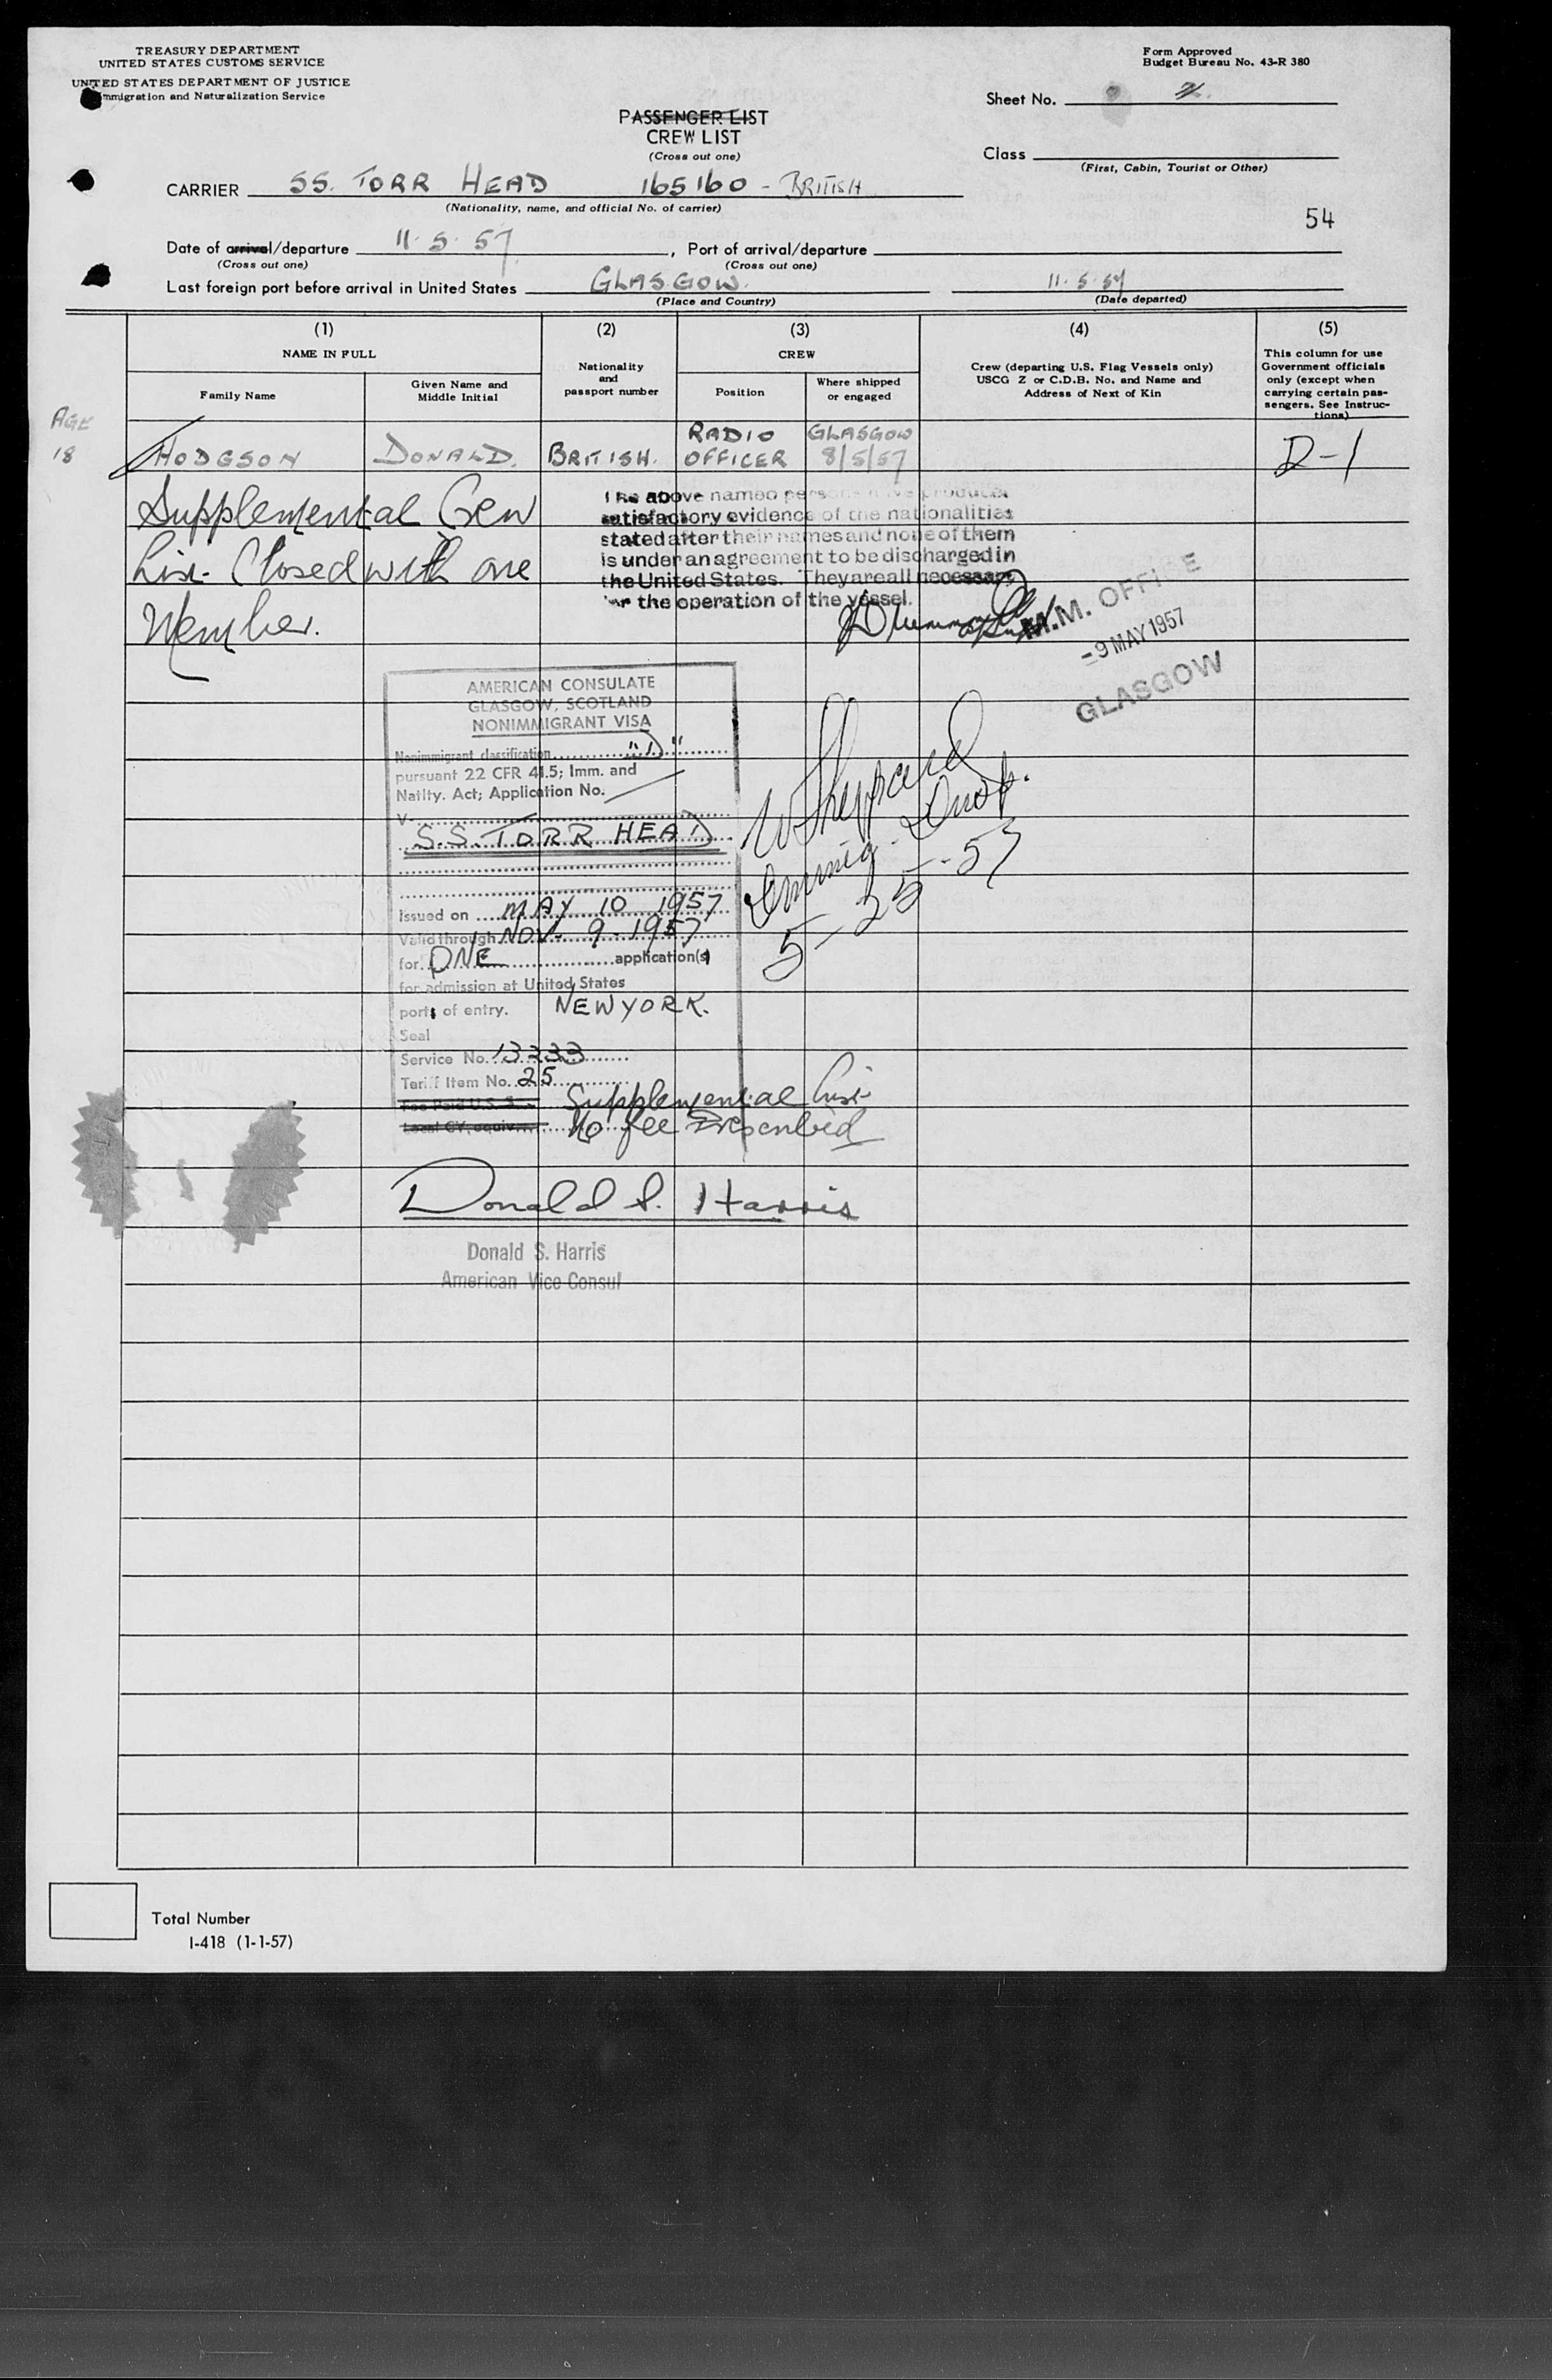 TREASURY DEPARTMENT
UNITED STATES CUSTOMS SERVICE
UNITED STATES DEPARTMENT OF JUSTICE
Immigration and Naturalization Service
Form Approved
Budget Bureau No. 43-R 380
Sheet No. 2.
PASSENGER LIST
CREW LIST
(Cross out one)
Class
(First, Cabin, Tourist or Other)
CARRIER SS. TORR HEAD 165160 - BRITISH
(Nationality, name, and official No. of carrier)
54
Date of arrival/departure 11.5.57, Port of arrival/departure
(Cross out one) (Cross out one)
Last foreign port before arrival in United States GLASGOW. 11.5.57
(Place and Country) (Date departed)
(1) (2) (3) (4) (5)
NAME IN FULL
Family Name
Given Name and
Middle Initial
Nationality
and
passport number
CREW
Position
Where shipped
or engaged
Crew (departing U.S. Flag Vessels only)
USCG Z or C.D.B. No. and Name and
Address of Next of Kin
This column for use
Government officials
only (except when
carrying certain pas-
sengers. See Instruc-
tions)
AGE
18 HODGSON DONALD. BRITISH. RADIO OFFICER GLASGOW 8/5/57 D-1
Supplemental Crew
List Closed with one
Member.
The above named persons have produced
satisfactory evidence of the nationalities
stated after their names and none of them
is under an agreement to be discharged in
the United States. They are all necessary
for the operation of the vessel.
M.M. OFFICE
-9 MAY 1957
GLASGOW
AMERICAN CONSULATE
GLASGOW, SCOTLAND
NONIMMIGRANT VISA
Nonimmigrant classification "D"
pursuant 22 CFR 41.5; Imm. and
Natlty. Act; Application No.
V-
S.S. TORR HEAD
Issued on MAY 10 1957
Valid through NOV. 9 - 1957
for ONE application(s)
for admission at United States
ports of entry. NEW YORK.
Seal
Service No. 13233
Tariff Item No. 25
Fee Paid U.S. $
Local CY. equiv.
Supplemental List
No fee Prescribed
W Sheppard
Immig. Insp.
5-25-57
Donald S. Harris
Donald S. Harris
American Vice Consul
Total Number
I-418 (1-1-57)